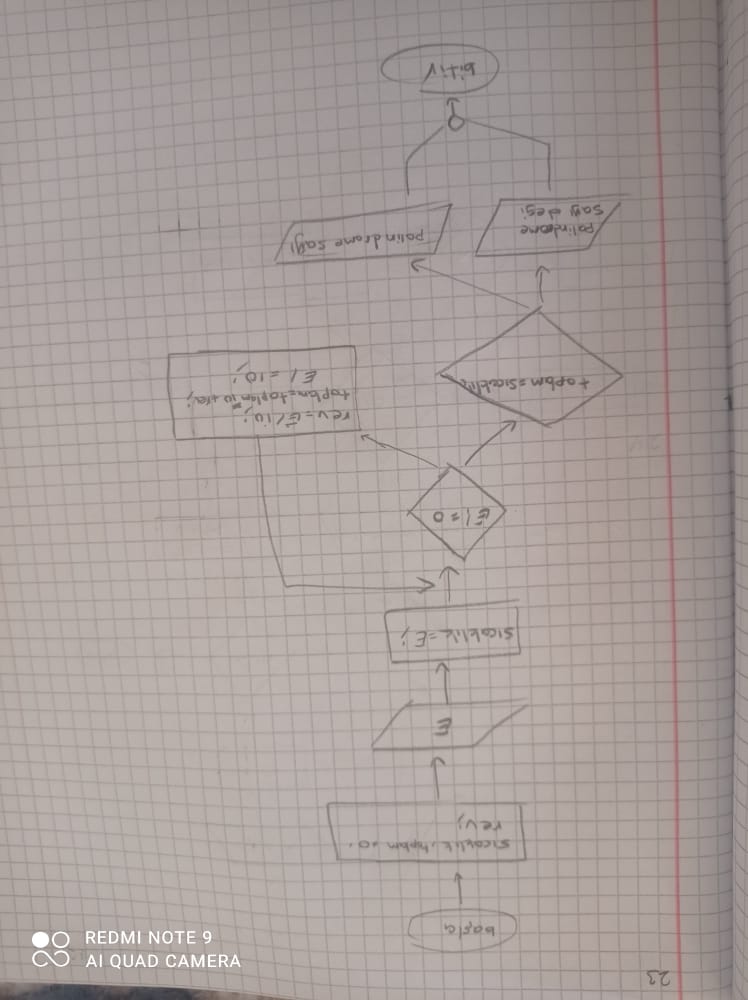 23
başla
sıcaklık, toplam=0,
rev;
E
sıcaklık=E;
E!=0
rev=E/10;
toplam=toplam*10+rev;
E/=10;
toplam=sıcaklık
palindrome
sayı değil
palindrome sayı
bitir
REDMI NOTE 9
AI QUAD CAMERA